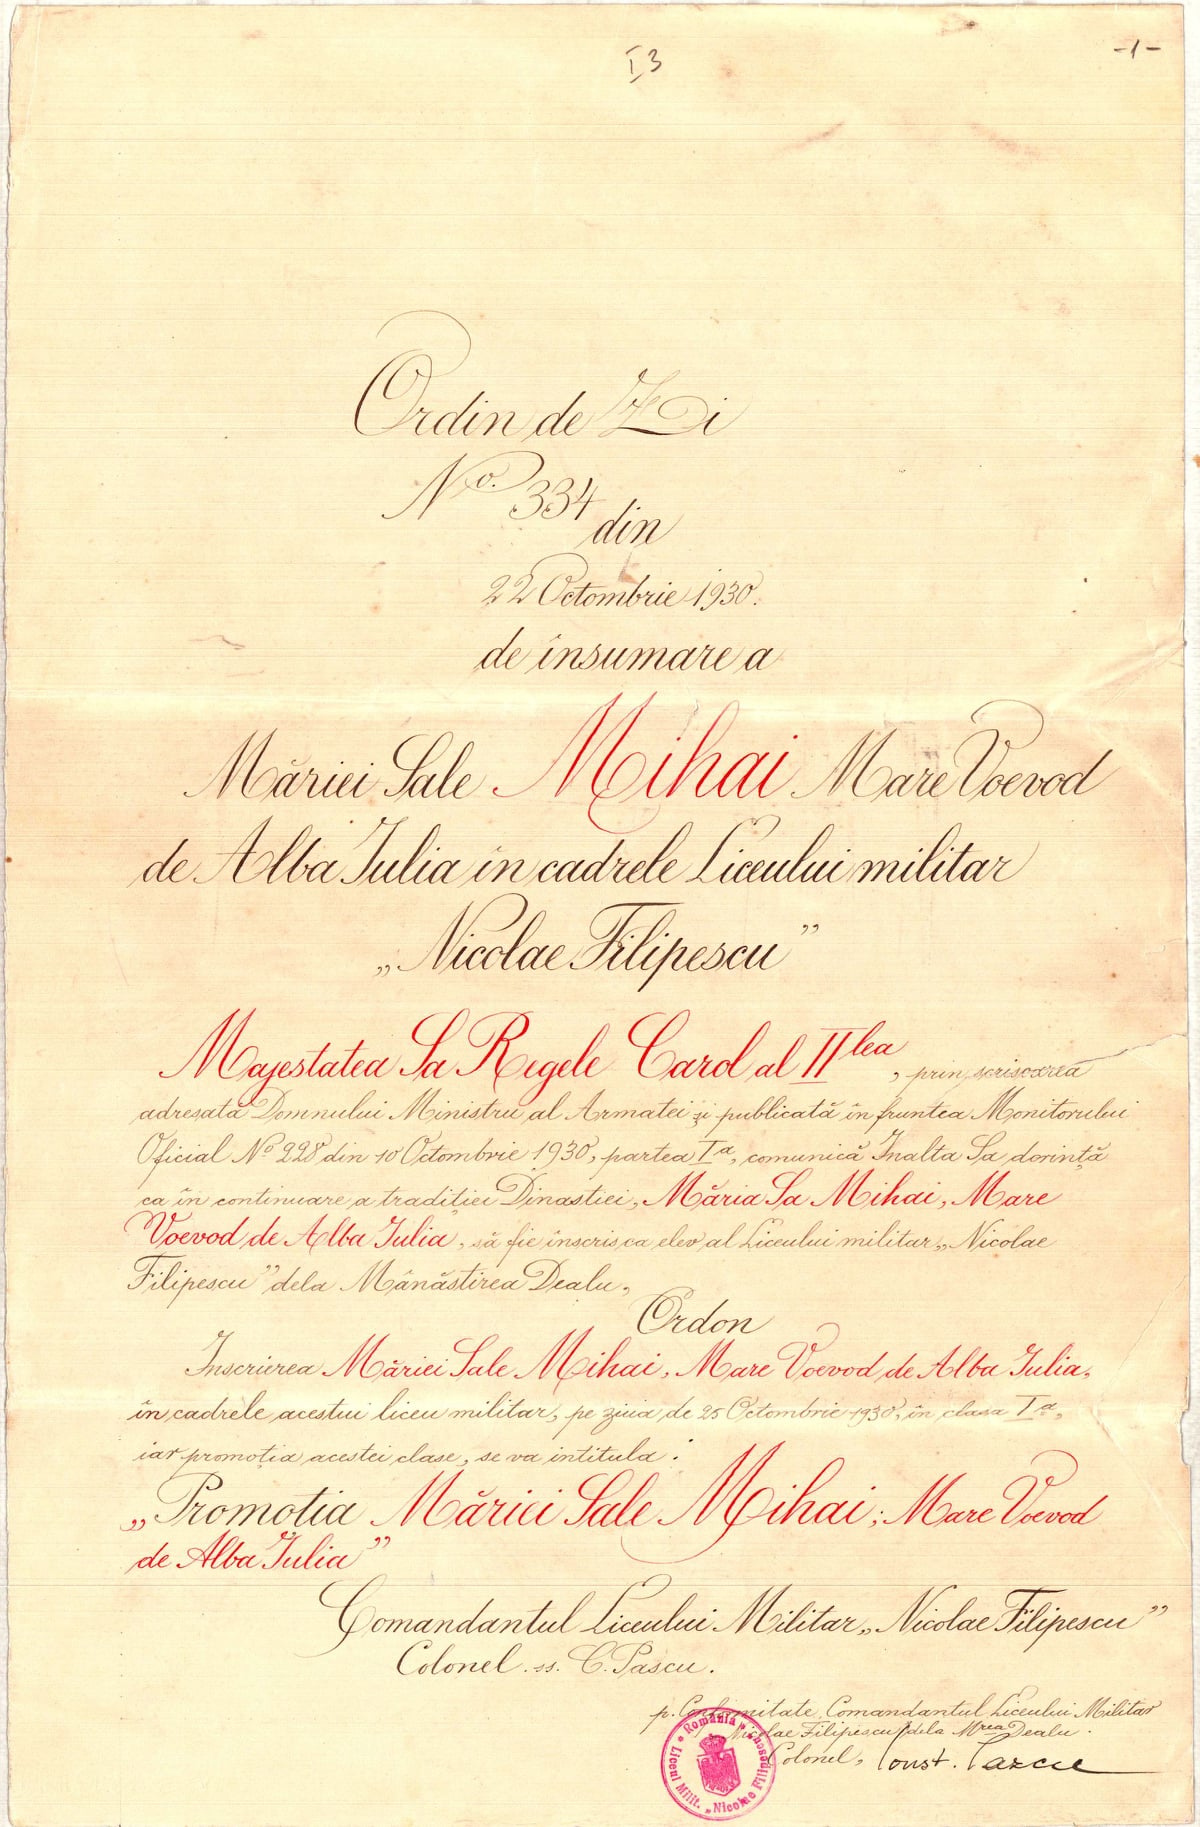 I3
-1-
Ordin de Zi
No. 334 din
22 Octombrie 1930.
de însumare a
Măriei Sale Mihai Mare Voevod
de Alba Iulia în cadrele Liceului militar
„Nicolae Filipescu”
Majestatea Sa Regele Carol al II lea, prin scrisoarea
adresată Domnului Ministru al Armatei și publicată în fruntea Monitorului
Oficial No 228 din 10 Octombrie 1930, partea Ia, comunică Inalta Sa dorință
ca în continuare a tradiției Dinastiei, Măria Sa Mihai, Mare
Voevod de Alba Iulia, să fie înscris ca elev al Liceului militar „Nicolae
Filipescu” dela Mânăstirea Dealu,
Ordon
Inscrierea Măriei Sale Mihai, Mare Voevod de Alba Iulia,
în cadrele acestui liceu militar, pe ziua de 25 Octombrie 1930, în clasa Ia,
iar promoția acestei clase, se va intitula:
„Promotia Măriei Sale Mihai; Mare Voevod
de Alba Iulia”
Comandantul Liceului Militar „Nicolae Filipescu”
Colonel ss. C. Pascu.
p. Conformitate, Comandantul Liceului Militar
Nicolae Filipescu dela Mrea Dealu.
Colonel, Const. Pascu
România * Liceul Milit. „Nicolae Filipescu”